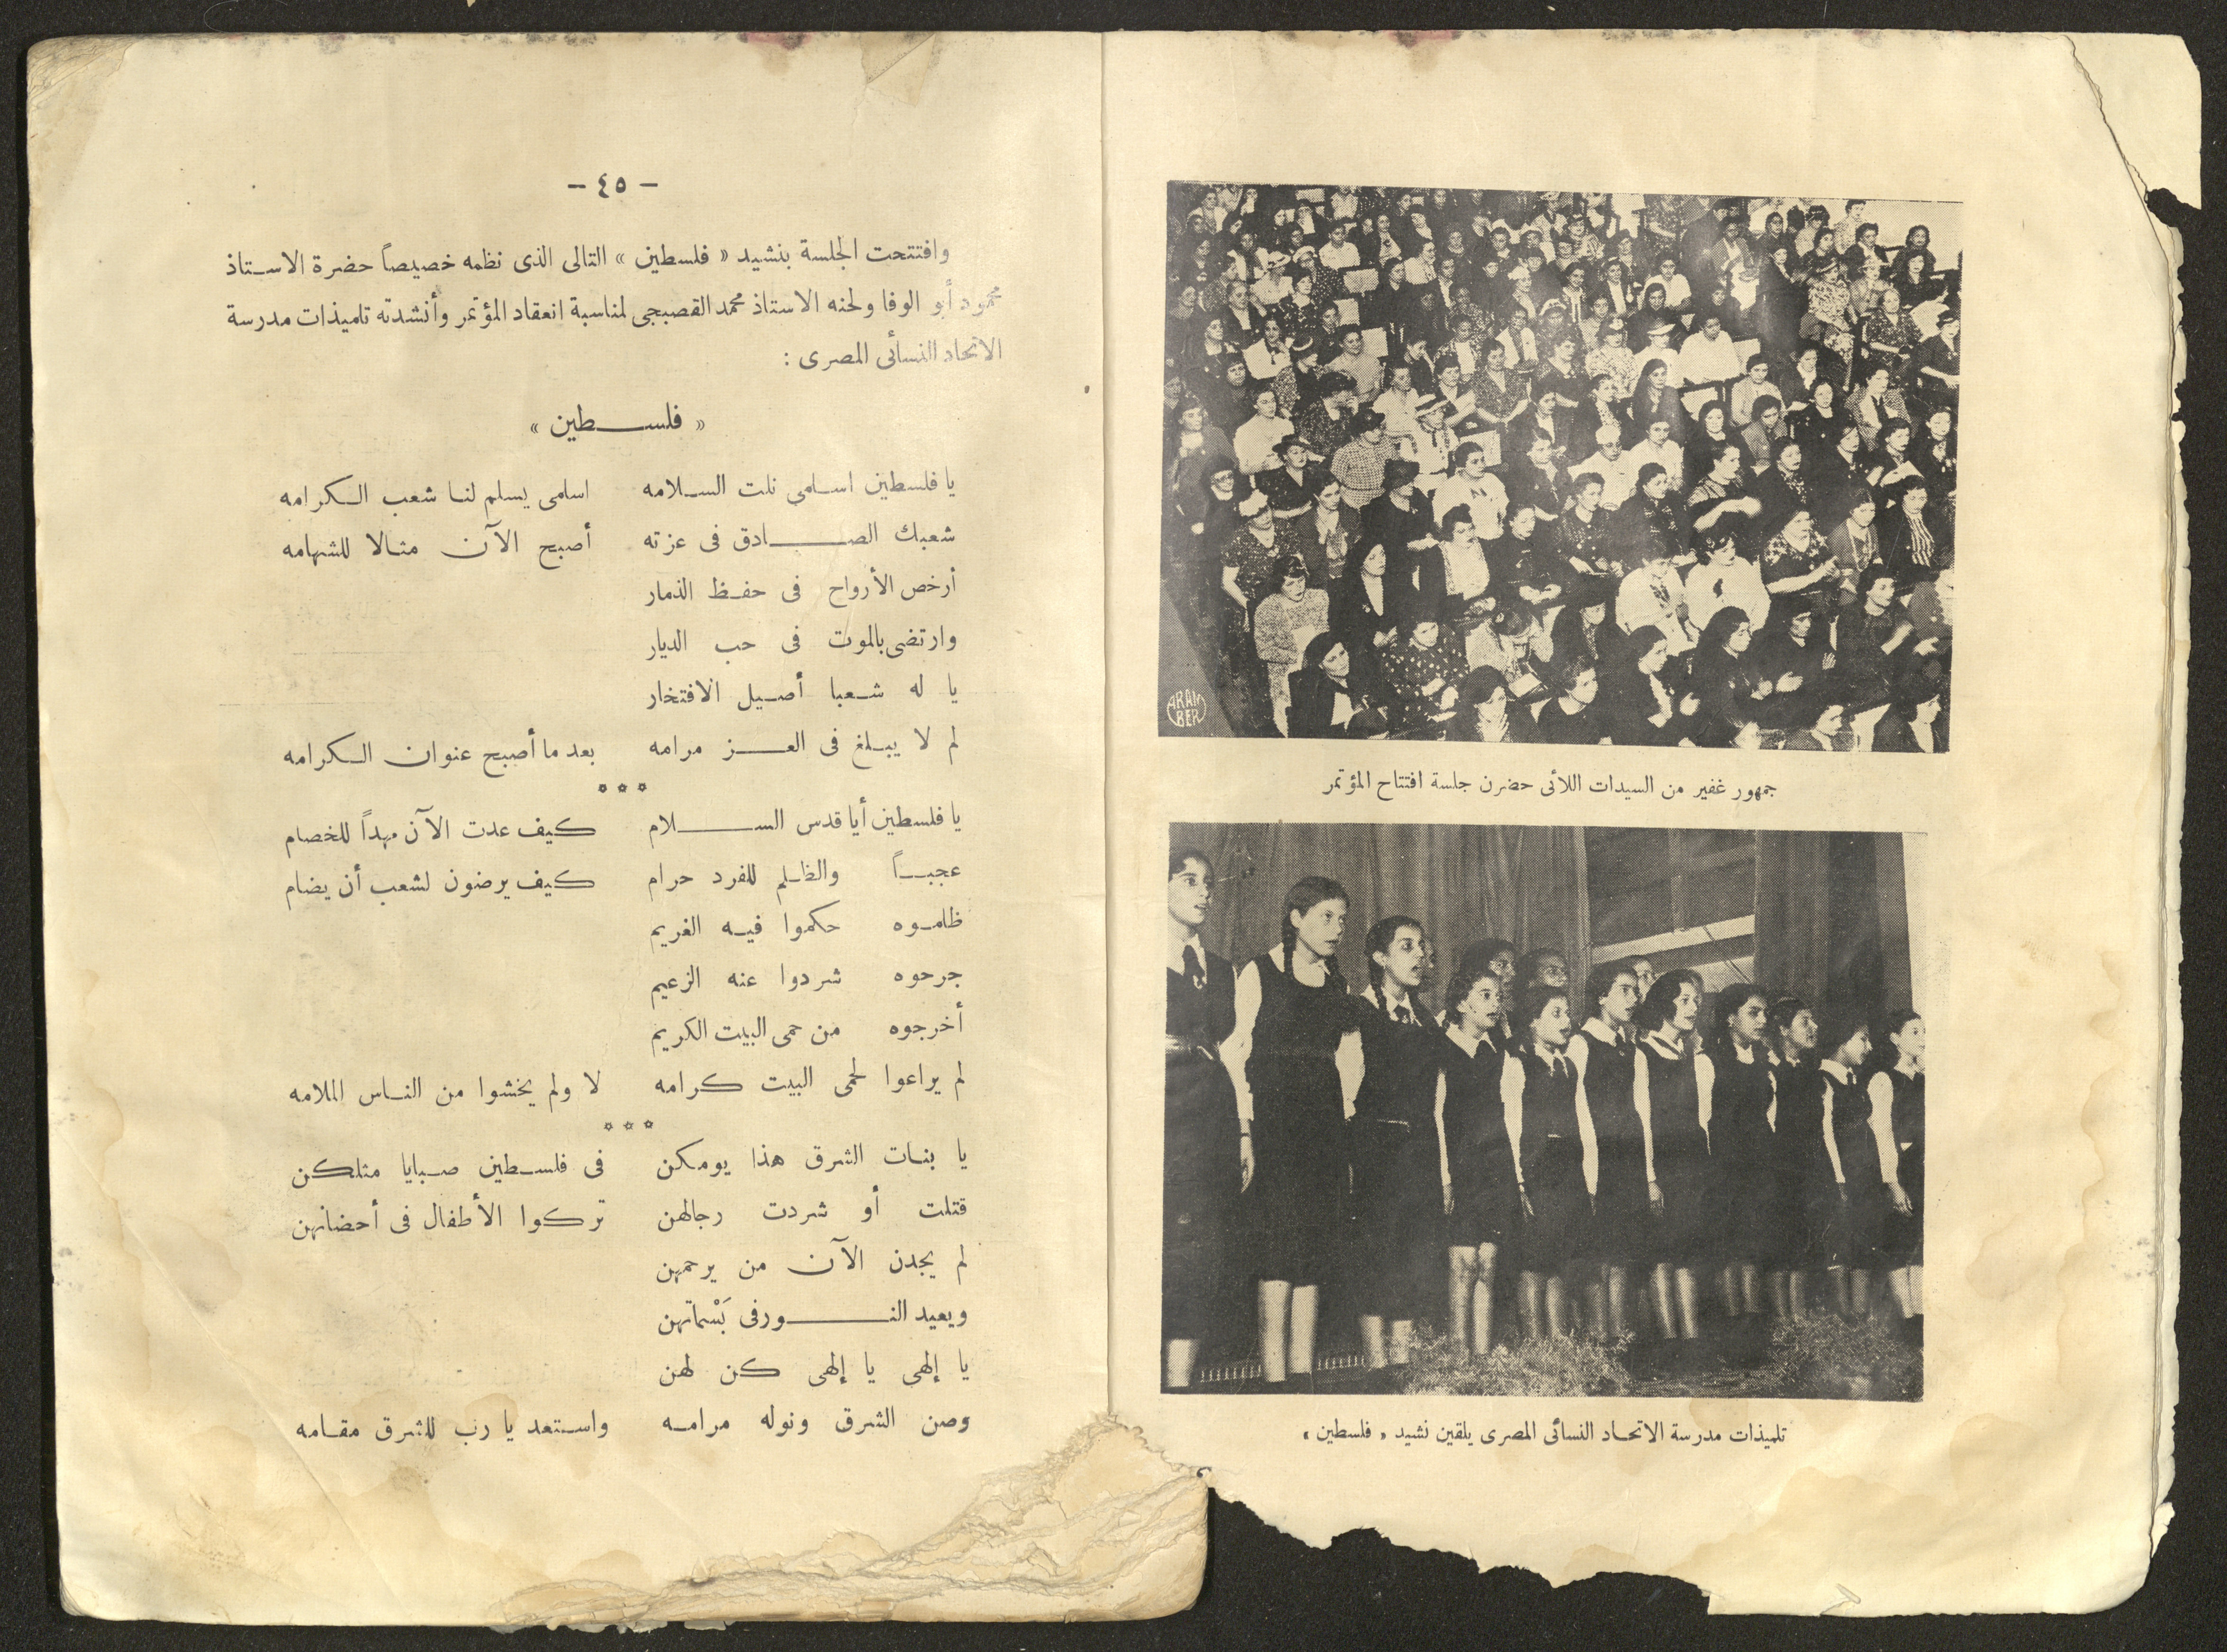 جمهور غفير من السيدات اللائى حضرن جلسة افتتاح المؤتمر
ARAM
BER
تلميذات مدرسة الاتحاد النسائى المصرى يلقين نشيد « فلسطين »
— ٤٥ —
وافتتحت الجلسة بنشيد « فلسطين » التالى الذى نظمه خصيصاً حضرة الاستاذ
محمود أبو الوفا ولحنه الاستاذ محمد القصبجى لمناسبة انعقاد المؤتمر وأنشدته تلميذات مدرسة
الاتحاد النسائى المصرى :
« فلسطين »
يا فلسطين اسلمى نلت السلامه اسلمى يسلم لنا شعب الكرامه
شعبك الصادق فى عزته أصبح الآن مثالا للشهامه
أرخص الأرواح فى حفظ الذمار
وارتضى بالموت فى حب الديار
يا له شعبا أصيل الافتخار
لم لا يبلغ فى العز مرامه بعد ما أصبح عنوان الكرامه
* * *
يا فلسطين أيا قدس السلام كيف عدت الآن مهداً للخصام
عجباً والظلم للفرد حرام كيف يرضون لشعب أن يضام
ظلموه حكموا فيه الغريم
جرحوه شردوا عنه الزعيم
أخرجوه من حمى البيت الكريم
لم يراعوا لحمى البيت كرامه لا ولم يخشوا من الناس الملامه
* * *
يا بنات الشرق هذا يومكن فى فلسطين صبايا مثلكن
قتلت أو شردت رجالهن تركوا الأطفال فى أحضانهن
لم يجدن الآن من يرحمهن
ويعيد النور فى بَسْماتهن
يا إلهى يا إلهى كن لهن
وصن الشرق ونوله مرامه واستعد يا رب للشرق مقامه